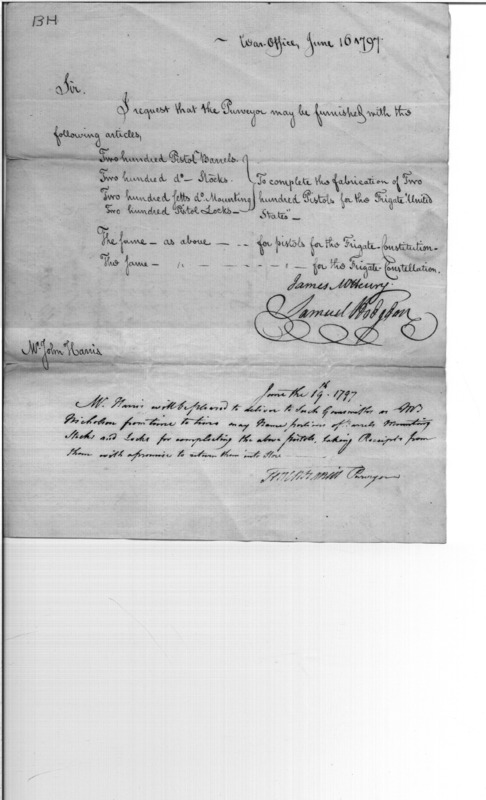 BH
War-Office, June 16 1797.
Sir.
I request that the Purveyor may be furnished with the
following articles,
Two hundred Pistol Barrels
Two hundred do— Stocks.
Two hundred setts do. Mounting
Two hundred Pistol-Locks—
To complete the fabrication of Two
hundred Pistols for the Frigate United
States—
The same — as above — for pistols for the Frigate Constitution—
The same — " — " — for the Frigate Constellation.
James McHenry.
Samuel Hodgdon
Mr John Harris
June the 19th 1797
Mr. Harris will be pleased to deliver to such Gunsmiths as Mr.
Nicholson from time to time may Name portions of Barrels Mounting
Stocks and Locks for compleating the above pistols, taking Receipts from
them with a promise to return them into Store
Purveyor